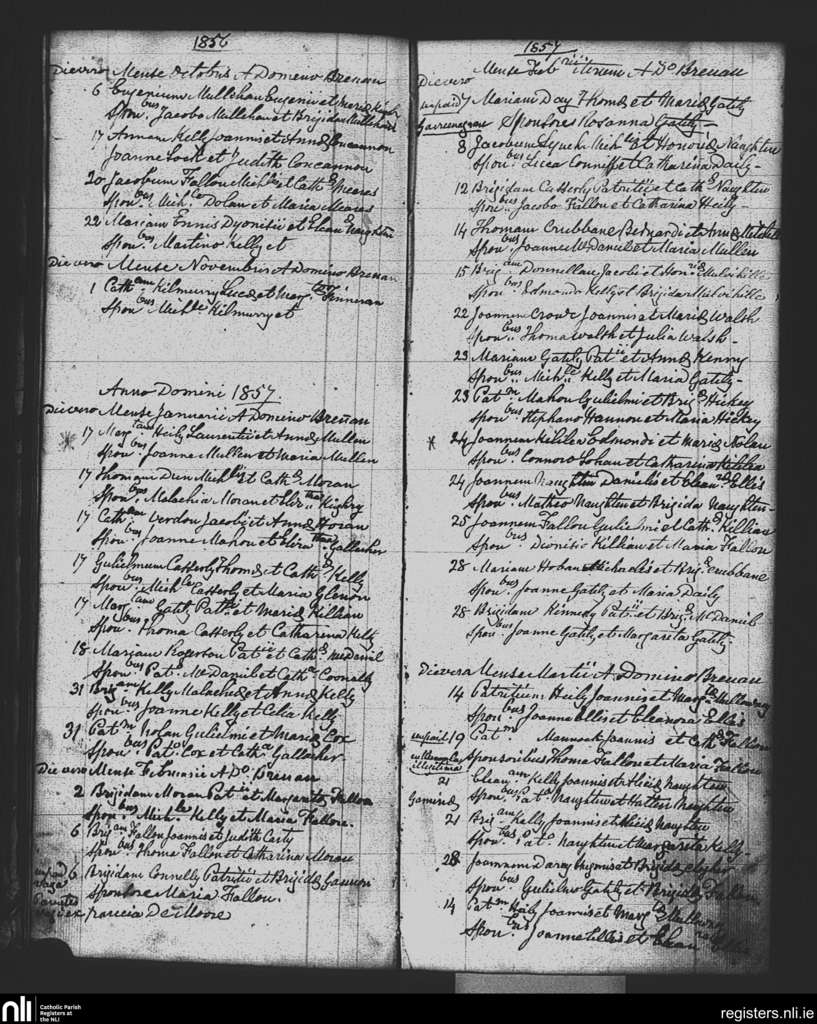 1856
Die vero Mense Octobris A Domino Brenan
6 Eugenium Mullehan Eugenii et Maria
Spon.bus Jacobo Mullehan et Brigida Mullehan
17 Annam Kelly Joannis et Anna Concannon
Joanne Lock et Judith Concannon
20 Jacobum Fallon Mich.lis et Cath.æ Meares
Spon.bus Mich.le Dolan et Maria Meares
22 Mariam Ennis Dyonisii et Elean.æ Naughten
Spon.bus Martino Kelly et
Die vero Mense Novembris A Domino Brenan
1 Cath.am Kilmurry Lucæ et Marg.tæ Finneran
Spon.bus Mich.le Kilmurry et
Anno Domini 1857.
Die vero Mense Januarii A Domino Brenan
17 Marg.tam Heily Laurentii et Annæ Mullen
Spon.bus Joanne Mullen et Maria Mullen
17 Thomam Dun Mich.lis et Cath.æ Moran
Spon.bus Malachia Moran et Eliz.tha Kighry
17 Cath.am Verdon Jacobi et Annæ Horan
Spon.bus Joanne Mahon et Eliz.tha Gallagher
17 Gulielmum Casserly Thomæ et Cath.æ Kelly
Spon.bus Mich.le Casserly et Maria Glenon
17 Marg.tam Gately Pat.ii et Mariæ Killian
Spon.bus Thoma Casserly et Catharina Kelly
18 Mariam Roperton Pat.ii et Cath.æ McDaniel
Spon.bus Pat.o McDaniel et Cath.a Connolly
31 Brig.am Kelly Malachiæ et Annæ Kelly
Spon.bus Joanne Kelly et Celia Kelly
31 Pat.m Nolan Gulielmi et Mariæ Cox
Spon.bus Pat.o Cox et Cath.a Gallagher
Die vero Mense Februarii A D.o Brenan
2 Brigidam Moran Pat.ii et Margaritæ Fallon
Spon.bus Mich.le Kelly et Maria Fallon.
6 Brig.am Fallon Joannis et Judith Carty
Spon.bus Thoma Fallon et Catharina Moran
unpaid 6 Brigidam Connelly Patricii et Brigidæ Gannon
vaga Sponsore Maria Fallon.
Parentes
Vagi ex parœcia De Moore
1857
Die vero Mense Feb.rii iterum A D.o Brenan
unpaid 7 Mariam Day Thomæ et Mariæ Gately
Sponsore Rosanna Gately
8 Jacobum Lynch Mich.lis et Honoriæ Naughten
Spon.bus Luca Conniff et Catharina Daily
12 Brigidam Casserly Patricii et Cath.æ Naughten
Spon.bus Jacobo Fallon et Catharina Heily
14 Thomam Cribbane Bernardi et Annæ Mitchell
Spon.bus Joanne McDaniel et Maria Mullen
15 Brig.am Donnellan Jacobi et Hon.riæ Mulvihille
Spon.bus Edmondo Kelly et Brigida Mulvihille
22 Joannem Crowe Joannis et Mariæ Walsh
Spon.bus Thoma Walsh et Julia Walsh
23 Mariam Gately Pat.ii et Annæ Kenny
Spon.bus Mich.le Kelly et Maria Gately
23 Pat.m Mahon Gulielmi et Brig.æ Hickey
Spon.bus Stephano Hannon et Maria Hickey
24 Joannem Kililea Edmondi et Mariæ Nolan
Spon.bus Connoro Lohan et Catharina Kililea
24 Joannem Naughten Danielis et Elean.ræ Ellis
Spon.bus Matheo Naughten et Brigida Naughten
25 Joannem Fallon Gulielmi et Cath.æ Killian
Spon.bus Dionisio Killian et Maria Fallon
28 Mariam Hoban Michaelis et Brig.æ Cribbane
Spon.bus Joanne Gately et Maria Daily
28 Brigidam Kennedy Pat.ii et Brig.æ McDaniel
Spon.bus Joanne Gately et Margarita Gately.
Die vero Mense Martii A Domino Brenan
14 Patritium Heily Joannis et Marg.tæ
Spon.bus Joanne Ellis et Eleanora Ellis
unpaid 19 Pat.m Mannock Joannis et Cath.æ Fallon
Illegitima Sponsoribus Thoma Fallon et Maria Fallon
21 Elean.am Kelly Joannis et Aliciæ Naughten
Gemina Spon.bus Pat.o Naughten et Naughten
21 Brig.am Kelly Joannis et Aliciæ Naughten
Spon.bus Pat.o Naughten et Margarita Kelly
28 Joannem Darcy et Brigidæ
Spon.bus Gulielmo Gately et Brigida Fallon
14 Pat.m Heily Joannis et Marg.tæ
Spon.bus Joanne Ellis et Elean
nli
Catholic Parish
Registers at
the NLI
registers.nli.ie